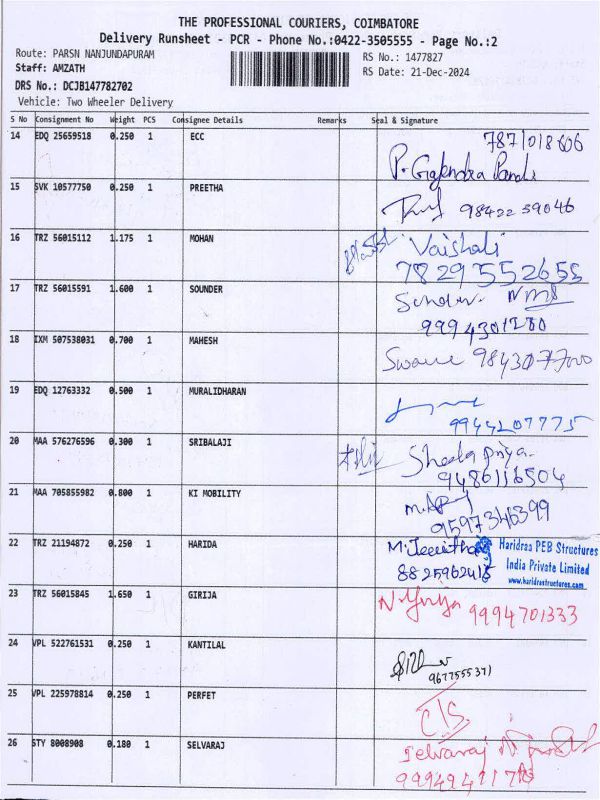 THE PROFESSIONAL COURIERS, COIMBATORE
Delivery Runsheet - PCR - Phone No.:0422-3505555 - Page No.:2
Route: PARSN NANJUNDAPURAM RS No.: 1477827
Staff: AMZATH RS Date: 21-Dec-2024
DRS No.: DCJB147782702
Vehicle: Two Wheeler Delivery
S No Consignment No Weight PCS Consignee Details Remarks Seal & Signature
14 EDQ 25659518 0.250 1 ECC 7871018606
P. Gajendra Pandi
15 SVK 10577750 0.250 1 PREETHA
98422 39046
16 TRZ 56015112 1.175 1 MOHAN Vaishali
7829552655
17 TRZ 56015591 1.600 1 SOUNDER Sunder.
9994301280
18 IXM 507538031 0.700 1 MAHESH 9843077700
19 EDQ 12763332 0.500 1 MURALIDHARAN
9944207775
20 MAA 576276596 0.300 1 SRIBALAJI Sheela priya.
9486116504
21 MAA 705855982 0.800 1 KI MOBILITY
9597346399
22 TRZ 21194872 0.250 1 HARIDA Haridraa PEB Structures
8825962416 India Private Limited
www.haridrastructures.com
23 TRZ 56015845 1.650 1 GIRIJA 9994701333
24 VPL 522761531 0.250 1 KANTILAL
9677555371
25 VPL 225978814 0.250 1 PERFET
26 STY 8008908 0.180 1 SELVARAJ Selvaraj